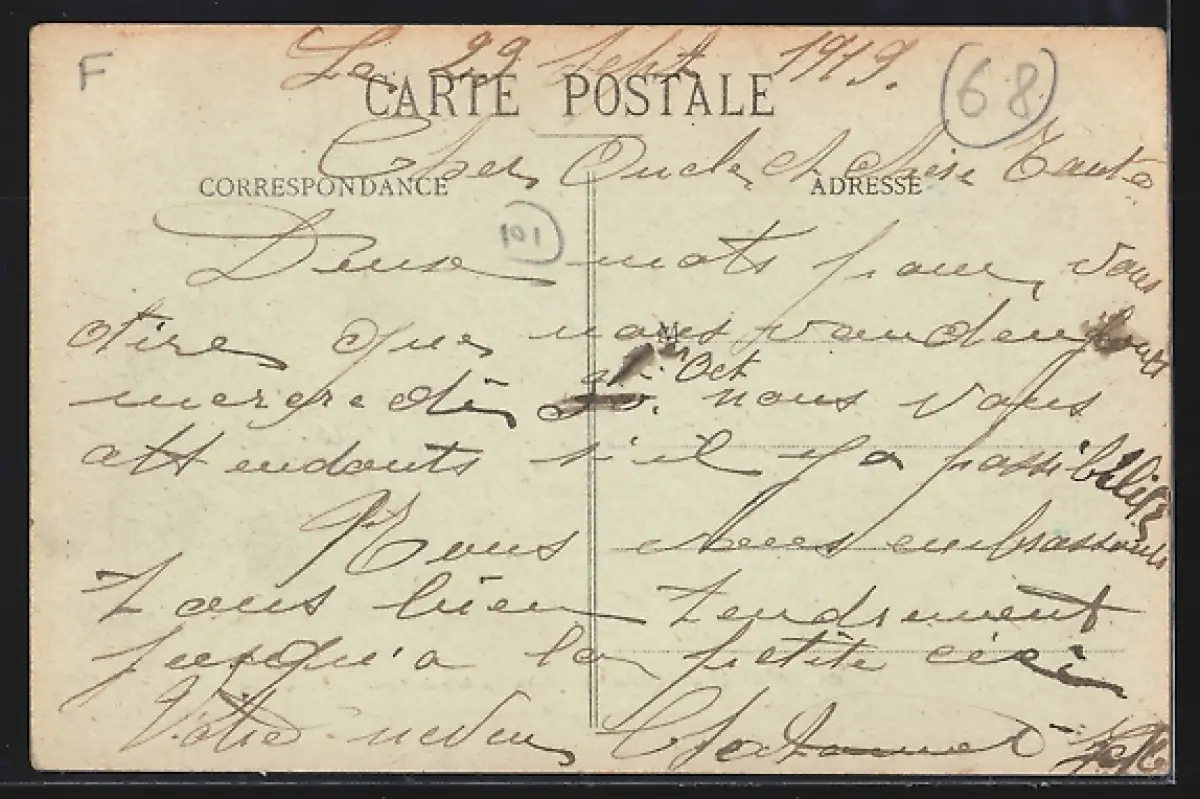 F
Le 29 Sept 1919.
68
CARTE POSTALE
Cher Oncle et chère Tante
CORRESPONDANCE
ADRESSE
101
Deux mots pour vous
dire que nous vendengeons
mercredi 1er Oct nous vous
attendonts s'il y a possibilité
Nous vous embrassons
tous bien tendrement
jusqu'a la petite cici
Votre neveu